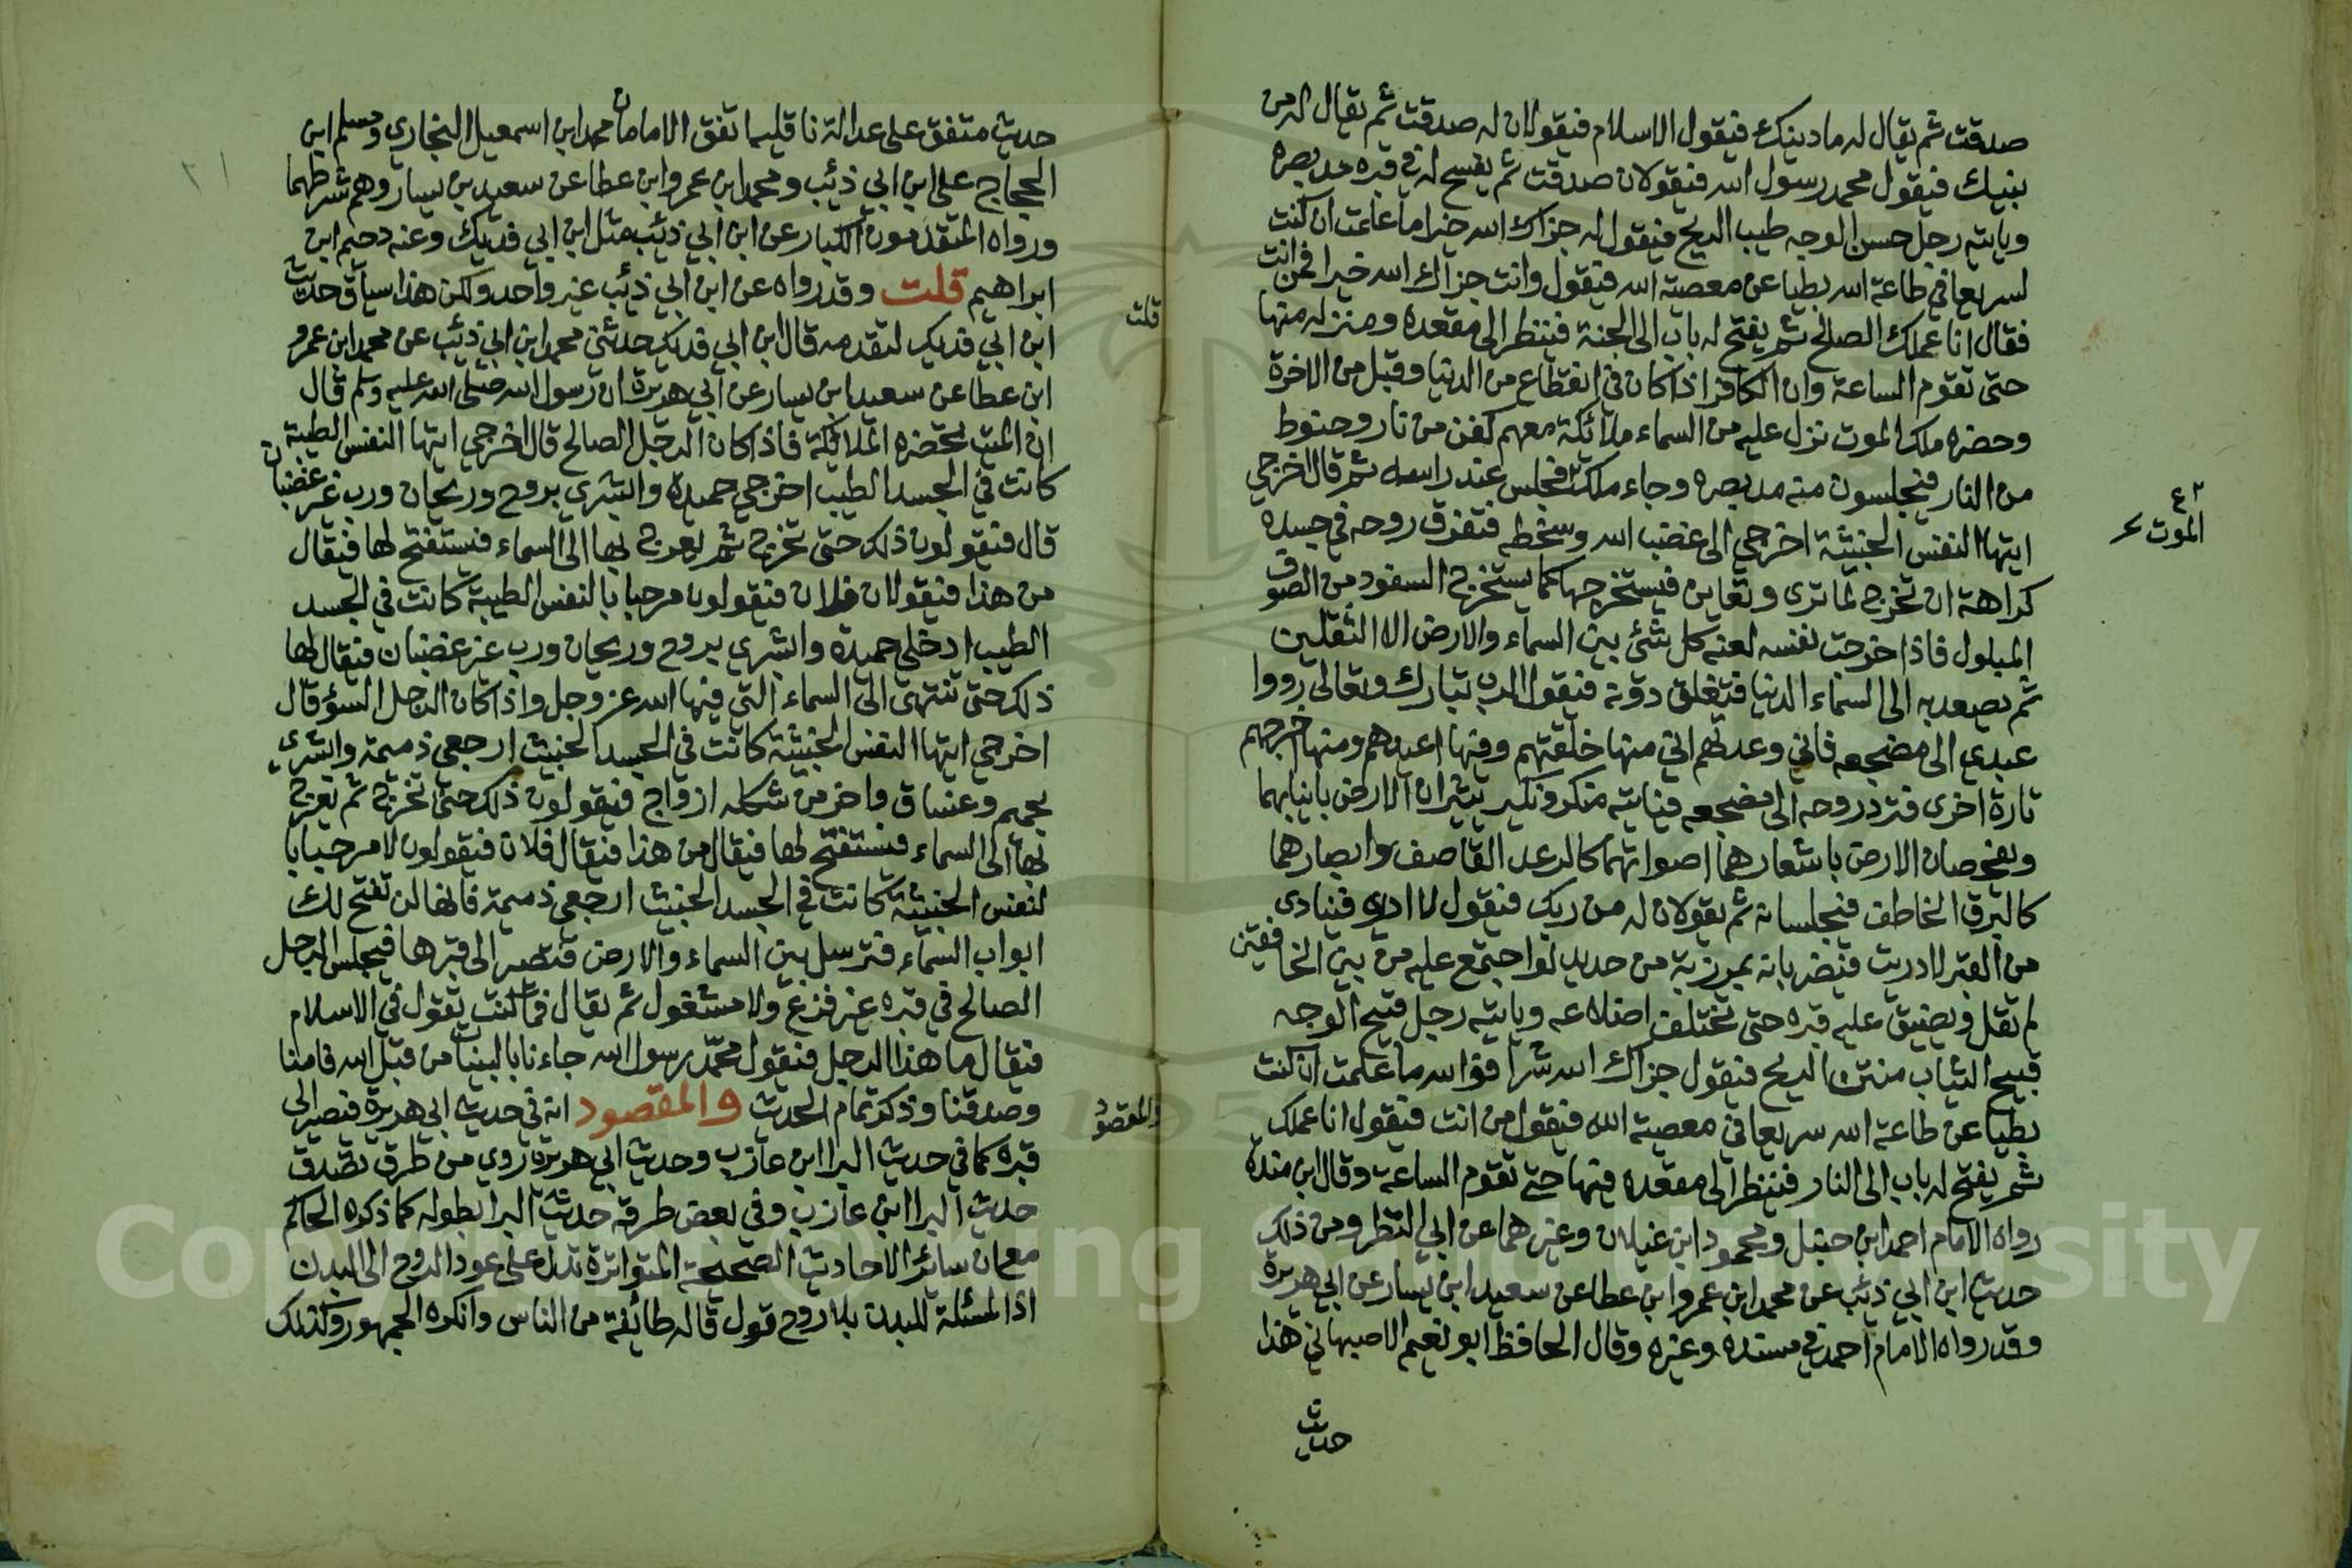 صدقت ثم يقال له ما دينك فيقول الاسلام فيقولان له صدقت ثم يقال له من
نبيك فيقول محمد رسول الله فيقولان صدقت ثم يفسح له في قبره مد بصره
وياتيه رجل حسن الوجه طيب الريح فيقول له جزاك الله خيرا ما علمت ان كنت
لسريعا في طاعة الله بطيا عن معصية الله فيقول وانت جزاك الله خيرا فمن انت
فقال انا عملك الصالح ثم يفتح له باب الى الجنة فينظر الى مقعده ومنزله منها
حتى تقوم الساعة وان الكافر اذا كان في انقطاع من الدنيا وقبل من الاخرة
وحضره ملك الموت نزل عليه من السماء ملائكة معهم كفن من نار وحنوط
من النار فيجلسون منه مد بصره وجاء ملك فجلس عند راسه ثم قال اخرجي
الموت
ايتها النفس الخبيثة اخرجي الى غضب الله وسخطه فتفرق روحه في جسده
كراهة ان تخرج لما ترى وتعاين فيستخرجها كما يستخرج السفود من الصوف
المبلول فاذا خرجت نفسه لعنه كل شئ بين السماء والارض الا الثقلين
ثم يصعد به الى السماء الدنيا فتغلق دونه فيقول الرب تبارك وتعالى ردوا
عبدي الى مضجعه فاني وعدتهم اني منها خلقتهم وفيها اعيدهم ومنها اخرجهم
تارة اخرى فترد روحه الى مضجعه فياتيه منكر ونكير يثيران الارض بانيابهما
ويفحصان الارض باشعارهما اصواتهما كالرعد القاصف وابصارهما
كالبرق الخاطف فيجلسانه ثم يقولان له من ربك فيقول لا ادري فينادى
من القبر لا دريت فيضربانه بمرزبة من حديد لو اجتمع عليه من بين الخافقين
لم تقل ويضيق عليه قبره حتى تختلف اضلاعه وياتيه رجل قبيح الوجه
قبيح الثياب منتن الريح فيقول جزاك الله شرا فوالله ما علمت ان كنت
بطيا عن طاعة الله سريعا في معصية الله فيقول من انت فيقول انا عملك
ثم يفتح له باب الى النار فينظر الى مقعده فيها حتى تقوم الساعة وقال ابن منده
رواه الامام احمد ابن حنبل ومحمود ابن غيلان وغيرهما عن ابي النظر ومن ذلك
حديث ابن ابي ذئب عن محمد ابن عمرو ابن عطا عن سعيد ابن يسار عن ابي هريرة
وقد رواه الامام احمد في مسنده وغيره وقال الحافظ ابو نعيم الاصبهاني هذا
حديث
حديث متفق على عدالة ناقليه اتفق الامامان محمد ابن اسمعيل البخاري ومسلم ابن
الحجاج على ابن ابي ذئب ومحمد ابن عمرو ابن عطا عن سعيد بن يسار وهم شرطهما
ورواه المتقدمون الكبار عن ابن ابي ذئب مثل ابن ابي فديك وعنه دحيم ابن
ابراهيم قلت وقد رواه عن ابن ابي ذئب غير واحد ولكن هذا سياق حديث
قلت
ابن ابي فديك لتقدمه قال ابن ابي فديك حدثني محمد ابن ابي ذئب عن محمد ابن عمرو
ابن عطا عن سعيد ابن يسار عن ابي هريرة ان رسول الله صلى الله عليه وسلم قال
ان الميت تحضره الملائكة فاذا كان الرجل الصالح قال اخرجي ايتها النفس الطيبة
كانت في الجسد الطيب اخرجي حميدة وابشري بروح وريحان ورب غير غضبان
قال فيقولون ذلك حتى تخرج ثم يعرج بها الى السماء فيستفتح لها فيقال
من هذا فيقولان فلان فيقولون مرحبا بالنفس الطيبة كانت في الجسد
الطيب ادخلي حميدة وابشري بروح وريحان ورب غير غضبان فيقال لها
ذلك حتى تنتهى الى السماء التي فيها الله عز وجل واذا كان الرجل السؤ قال
اخرجي ايتها النفس الخبيثة كانت في الجسد الخبيث ارجعي ذميمة وابشري
بحميم وغساق واخر من شكله ازواج فيقولون ذلك حتى تخرج ثم يعرج
بها الى السماء فيستفتح لها فيقال من هذا فيقال فلان فيقولون لا مرحبا با
لنفس الخبيثة كانت في الجسد الخبيث ارجعي ذميمة فانها لن تفتح لك
ابواب السماء فترسل بين السماء والارض فتصير الى قبرها فيجلس الرجل
الصالح في قبره غير فزع ولا مشغول ثم يقال فما كنت تقول في الاسلام
فيقال ما هذا الرجل فيقول محمد رسول الله جاءنا بالبينات من قبل الله فامنا
وصدقنا وذكر تمام الحديث والمقصود انه في حديث ابي هريرة فتصير الى
والمقصود
قبره كما في حديث البرا ابن عازب وحديث ابي هريرة روي من طرق تصدق
حديث البرا ابن عازب وفي بعض طرقه حديث البرا بطوله كما ذكره الحاكم
مع ان سائر الاحاديث الصحيحة المتواترة تدل على عود الروح الى البدن
اذا المسئلة للبدن بلا روح قول قاله طائفة من الناس وانكره الجمهور وكذلك
Copyright © King Saud University